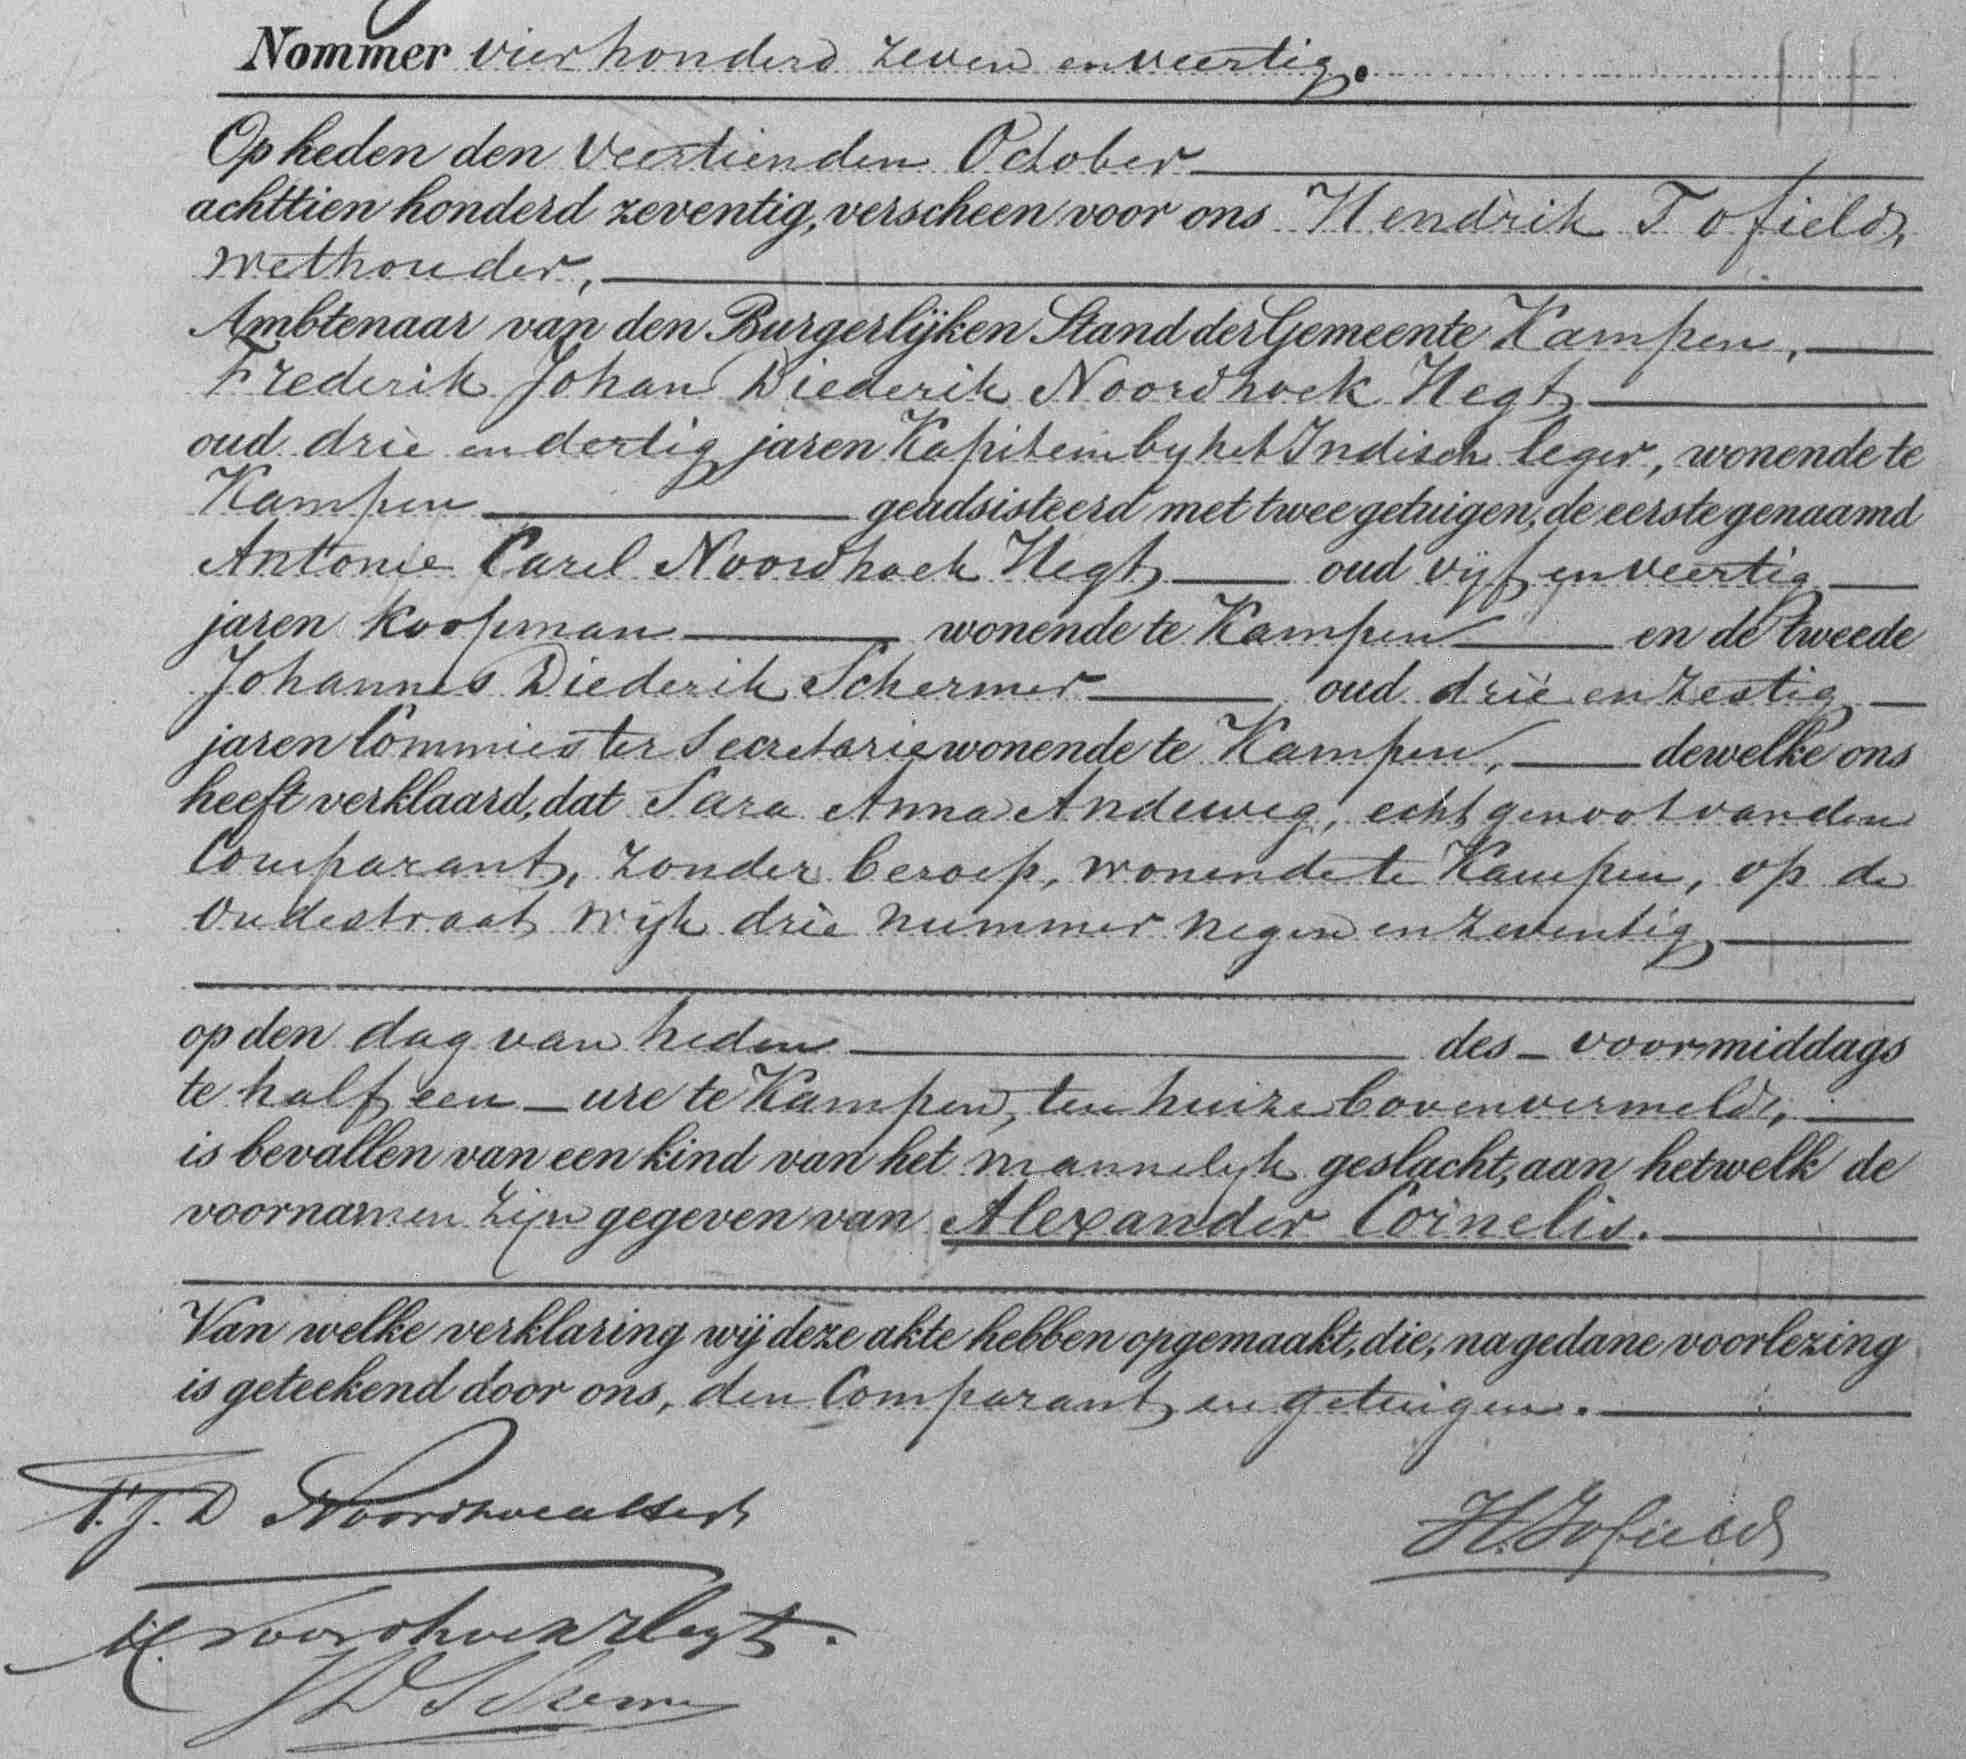 Nommer vierhonderd zeven en veertig.
Op heden den veertienden October
achttien honderd zeventig, verscheen voor ons Hendrik Tofield,
wethouder,
Ambtenaar van den Burgerlijken Stand der Gemeente Kampen,
Frederik Johan Diederik Noordhoek Hegt
oud drie en dertig jaren Kapitein by het Indisch leger, wonende te
Kampen geadsisteerd met twee getuigen, de eerste genaamd
Antonie Carel Noordhoek Hegt oud vijf en veertig
jaren koopman wonende te Kampen en de tweede
Johannes Diederik Schermer oud drie en zestig
jaren Commies ter Secretarie wonende te Kampen, dewelke ons
heeft verklaard, dat Sara Anna Andeweg, echtgenoot van den
Comparant, zonder beroep, wonende te Kampen, op de
Oudestraat wijk drie nummer negen en zeventig
op den dag van heden des voormiddags
te half een ure te Kampen, ten huize bovenvermeld,
is bevallen van een kind van het mannelyk geslacht, aan hetwelk de
voornamen zijn gegeven van Alexander Cornelis.
Van welke verklaring wij deze akte hebben opgemaakt, die, na gedane voorlezing
is geteekend door ons, den Comparant en getuigen.
F. J. D Noordhoek Hegt
H. Tofield
AC. Noordhoek Hegt.
J D Scherm